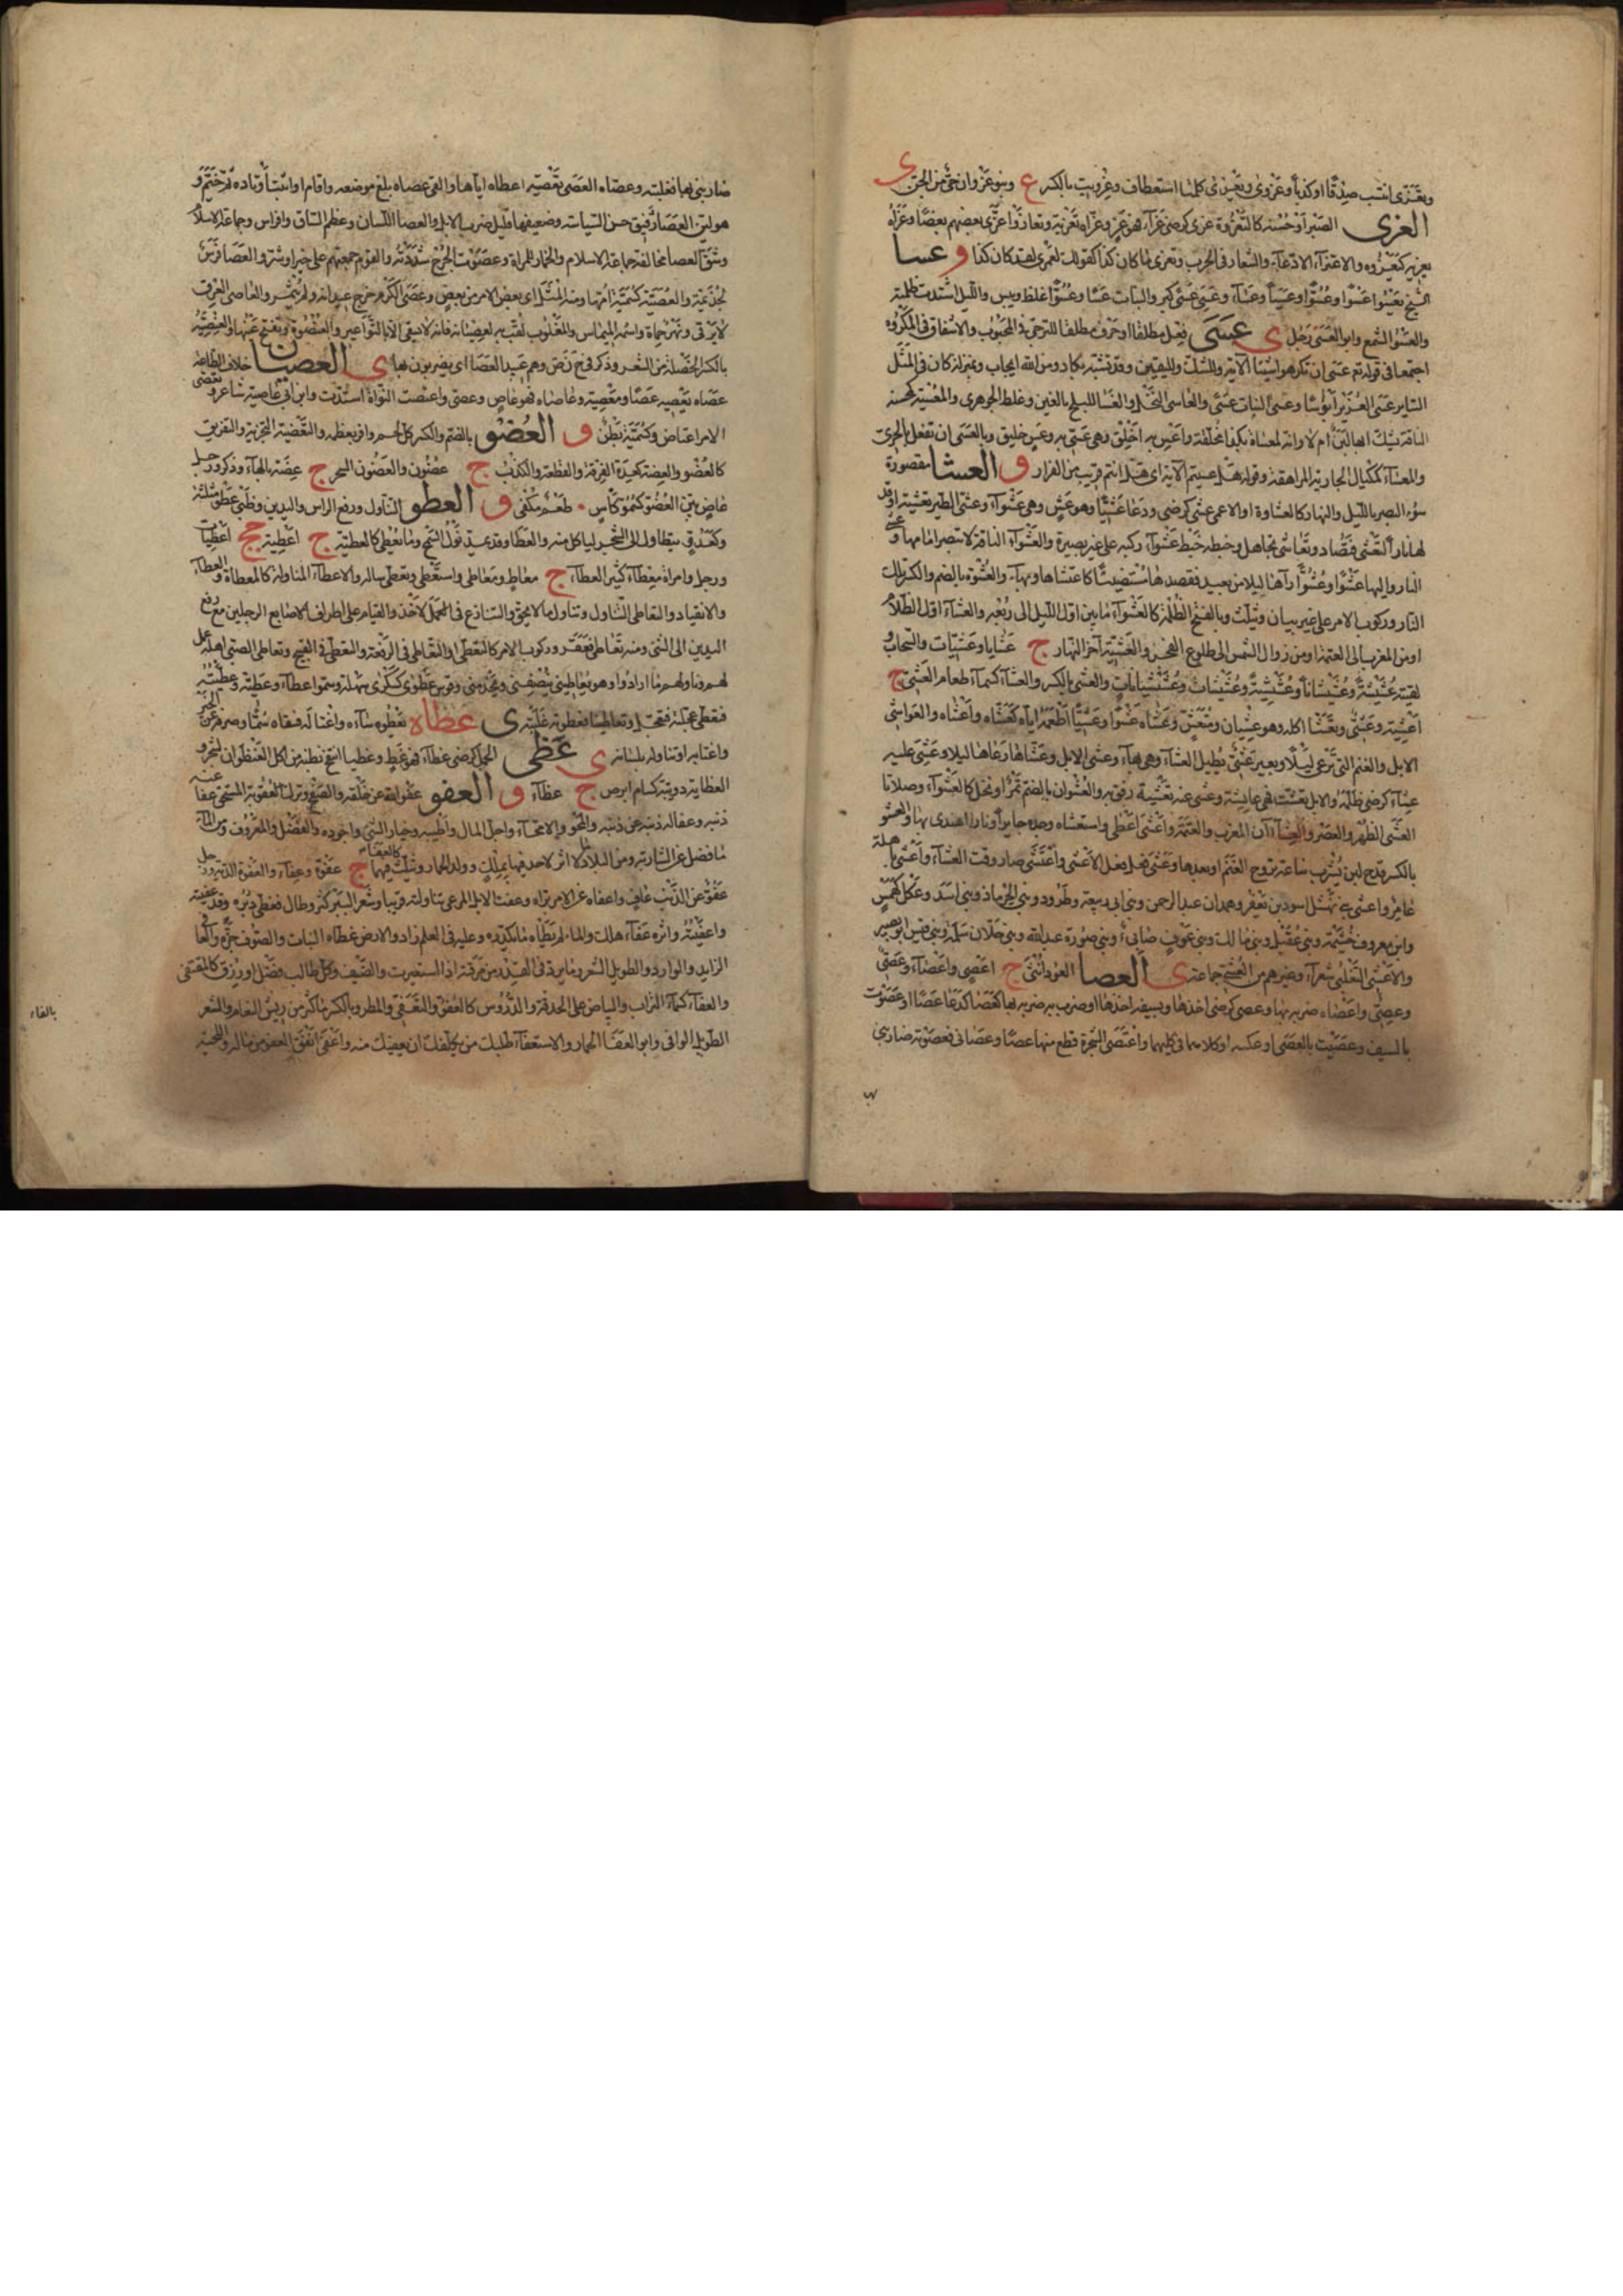 وتعزى انتسب صدقا او كذبا وعزوى وتعزى كلمتا استعطاف وعزويت بالكسر ع وبنو عزوان حى من الجن ى
العزى الصبر او حسنه كالتعزوة عزى كرضى عزآء فهو عز وعزاه تعزية وتعازوا عزى بعضهم بعضا وعزاه
يعزيه كيعزوه والاعتزآء الادعآء والشعار فى الحرب وتعزى ما كان كذا كقولك لعمرى لقد كان كذا و عسا
الشيخ يعسو عسوا وعسوا وعسيا وعسآء وعسى عسى كبر والنبات عسا وعسوا غلظ ويبس والليل اشتدت ظلمته
والعسو الشمع وابو العسى رجل ى عسى فعل مطلقا او حرف مطلقا للترجى فى المحبوب والاشفاق فى المكروه
اجتمعا فى قوله تع عسى ان تكرهوا شيئا الآية وللشك ولليقين وقد تشبه بكاد ومن الله ايجاب وبمنزلة كان فى المثل
الساير عسى الغوير ابؤسا وعسى النبات عسى والعاسى النخل والعسا للبلح بالغين وغلط الجوهرى والمعسية كمحسنة
الناقة يشك ابها لبن ام لا وانه لمعساة بكذا مخلقة واعس به اخلق وهى عسى به وعس خليق وبالعسى ان تفعل بالحرى
والمعسآء كمكيال الجارية المراهقة وقوله هل عسيتم الآية اى هل انتم قريب من الفرار و العشا مقصورة
سوء البصر بالليل والنهار كالعشاوة او الاعمى عشى كرضى ودعا عشى وهو عش وهى عشوآء وعشى الطير تعشية اوقد
لها نارا لتعشى فتصاد وتعاشى تجاهل وخبطه خبط عشوآء ركبه على غير بصيرة والعشوآء الناقة لا تبصر امامها وعشى
النار واليها عشوا وعشوا رآها ليلا من بعيد فقصدها مستضيئا كاعتشاها وبها والعشوة بالضم والكسر تلك
النار وركوب الامر على غير بيان ويثلث وبالفتح الظلمة كالعشوآء ما بين اول الليل الى ربعه والعشآء اول الظلام
او من المغرب الى العتمة او من زوال الشمس الى طلوع الفجر والعشية آخر النهار ج عشايا وعشيات والسحاب و
لقيته عشيشة وعشيشانا وعشيشية وعشيشات وعشيشيانات والعشى بالكسر والعشآء كسمآء طعام العشى ج
اعشية وعشى وتعشا اكله وهو عشيان ومتعش وعشاه عشوا وعشيا اطعمه اياه كعشاه واعشاه والعواشى
الابل والغنم التى ترعى ليلا وبعير عشى يطيل العشآء وهى بهآء وعشى الابل وعشاها رعاها ليلا وعشى عليه
عشآء كرضى ظلمه والابل تعشت فهى عاشية وعشى عنه تعشية رفق به والعشوان بالضم تمر او نخل كالعشوآء وصلاتا
العشى الظهر والعصر والعشآءان المغرب والعتمة واعشى اعطى واستعشاه وجده جايرا ونارا اهتدى بها والعشو
بالكسر قدح لبن يشرب ساعة تروح الغنم او بعدها وعشى فعل فعل الاعشى واعتشى صار وقت العشآء واعشى باهلة
عامر واعشى بنى نهشل اسود بن يعفر وهمدان عبد الرحمن وبنى ابى ربيعة وطرود وبنى الحرماز وبنى اسد وعكل كهمس
وابن معروف خيثمة وبنى عقيل وبنى مالك وبنى عوف ضابئ وبنى ضورة عبد الله وبنى جلان سلمة وبنى قيس ابو بصير
والاعشى التغلبى شعرآء وغيرهم من العشى جماعة ى العصا العود انثى ج اعص واعصآء وعصى
وعصى وعصاه ضربه بها وعصى كرضى اخذها وبسيفه اخذ اخذها او ضرب به ضربه بها كعصا كدعا عصا او عصوت
بالسيف وعصيت بالعصى او عكسه او كلاهما فى كليهما واعتصى الشجرة قطع منها عصا وعصانى فعصوته ضاربنى
ضاربنى بها فغلبته وعصاه العصى تعصية اعطاه اياها والقى عصاه بلغ موضعه واقام او اثبت اوتاده ثم خيم و
هو لين العصا رفيق حسن السياسة وضعيفها قليل ضرب الابل والعصا اللسان وعظم الساق وافراس وجماعة الاسلام
وشق العصا مخالفة جماعة الاسلام والخمار للمراة وعصوت الجرح شددته والقوم جمعتهم على خير او شر والعصا فرس
لجذيمة والعصية كسمية امها ومنه المثل اى بعض الامر من بعض وعصى الكرم خرج عيدانه ولم يثمر والعاصى العرق
لا يرقى ونهر حماة واسمه الميماس والمقلوب لقب به لعصيانه فانه لا يسقى الا بالنواعير والعنصوة وتفتح عينها والعنصية
بالكسر الخصلة من الشعر وذكر فى ع ن ص وهم عبيد العصا اى يضربون بها ى العصيان خلاف الطاعة
عصاه يعصيه عصيا ومعصية وعاصاه فهو عاص وعصى واعتصت النواة اشتدت وابن ابى عاصية شاعر وتعصى
الامر اعتاص وكسمية بطن و العضو بالضم والكسر كل لحم وافر بعظمه والتعضية التجزية والتفريق
كالعضو والعضة كعدة الفرقة والقطعة والكذب ج عضون والعضون السحر ج عضة بالهآء وذكر ورجل
عاض بين العضو كسمو كاس طعم مكفى و العطو التناول ورفع الراس واليدين وظبى عطو مثلثة
وكعدو يتطاول الى الشجر لياكل منه والعطا وقد يمد نول السمح وما يعطى كالعطية ج اعطية جج اعطيات
ورجل وامراة معطآء كثير العطآء ج معاط ومعاطى واستعطى وتعطى ساله والاعطآء المناولة كالمعاطاة والعطآء
والانقياد والتعاطى التناول وتناول ما لا يحق والتنازع فى الاخذ والقيام على اطراف الاصابع الرجلين مع رفع
اليدين الى الشى ومنه فتعاطى فعقر وركوب الامر كالتعطى او التعاطى فى الرفعة والتعطى فى القبيح وتعاطى الصبى اهله عمل
لهم وناولهم ما ارادوا وهو يعاطينى ينصفنى ويخدمنى وقوس عطوى كسكرى سهلة وسموا عطآء وعطية وعطيته
فتعطى عجلته فتعجل وتعاطينا فعطوته غلبته ى عظاه يعظوه سآءه واغتاله فسقاه سما وصرفه عن الخير
واغتابه او تناوله بلسانه ى عظى الجمل كرضى عظآء فهو عظ وعظيا انتفخ بطنه من اكل العنظوان لشجر و
العظاية دويبة كسام ابرص ج عظآء و العفو عفو الله عن خلقه والصفح وترك العقوبة المستحق عفا عنه
ذنبه وعفا له ذنبه وعن ذنبه والمحو والامحآء واحل المال واطيبه وخيار الشى واجوده والفضل والمعروف ومن المآء
ما فضل عن الشاربة ومن البلاد ما لا اثر لاحد فيها بملك وولد الحمار ويثلث كالعفا فيهما ج عفوة وعفآء والعفوة الدية ورجل
عفو عن الذنب عاف واعفاه عن الامر براه وعفت الابل المرعى تناولته قريبا وشعر البعير كثر وطال فغطى دبره وقد عفيته
واعفيته واثره عفآء هلك والمآء لم يطاه ما يكدره وعليه فى العلم زاد والارض غطاه النبات والصوف جزه والعافى
الزايد والوارد والطويل الشعر وما يرد فى القدر من مرقة اذا استعيرت والضيف وكل طالب فضل او رزق كالمعتفى
والعفآء كسمآء التراب والبياض على الحدقة والدروس كالعفو والتعفى والمطر وبالكسر ما كثر من ريش النعام والشعر
الطويل الوافى وابو العفا الحمار والاستعفآء طلبك من يكلفك ان يعفيك منه واعفى انفق العفو من ماله واللحية
بالفاء